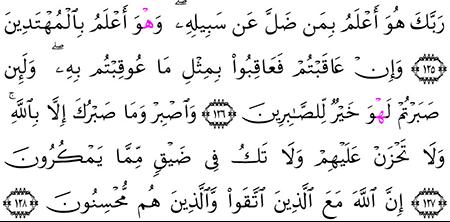 رَبَّكَ هُوَ أَعْلَمُ بِمَن ضَلَّ عَن سَبِيلِهِۦۖ وَهْوَ أَعْلَمُ بِالْمُهْتَدِينَ
۝١٢٥ وَإِنْ عَاقَبْتُمْ فَعَاقِبُوا۟ بِمِثْلِ مَا عُوقِبْتُم بِهِۦۖ وَلَئِن
صَبَرْتُمْ لَهْوَ خَيْرٌ لِّلصَّٰبِرِينَ ۝١٢٦ وَاصْبِرْ وَمَا صَبْرُكَ إِلَّا بِاللَّهِۚ
وَلَا تَحْزَنْ عَلَيْهِمْ وَلَا تَكُ فِى ضَيْقٍ مِّمَّا يَمْكُرُونَ
۝١٢٧ إِنَّ اللَّهَ مَعَ الَّذِينَ اتَّقَوا۟ وَّالَّذِينَ هُم مُّحْسِنُونَ ۝١٢٨